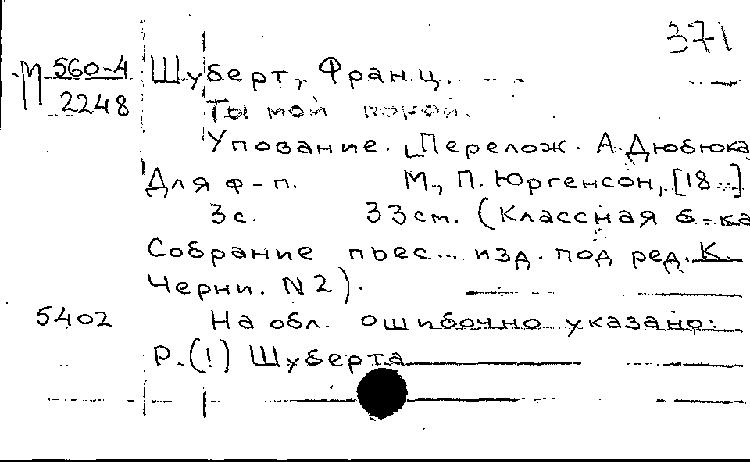 371
М 560-4 Шуберт, Франц.
2248 Ты мой покой.
Упование. [Перелож. А. Дюбюка
Для ф-п. М., П. Юргенсон, [18..]
3с. 33см. (Классная б-ка
Собрание пьес... изд. под ред. К.
Черни. N2).
5402 На обл. ошибочно указано:
Р.(!) Шуберта